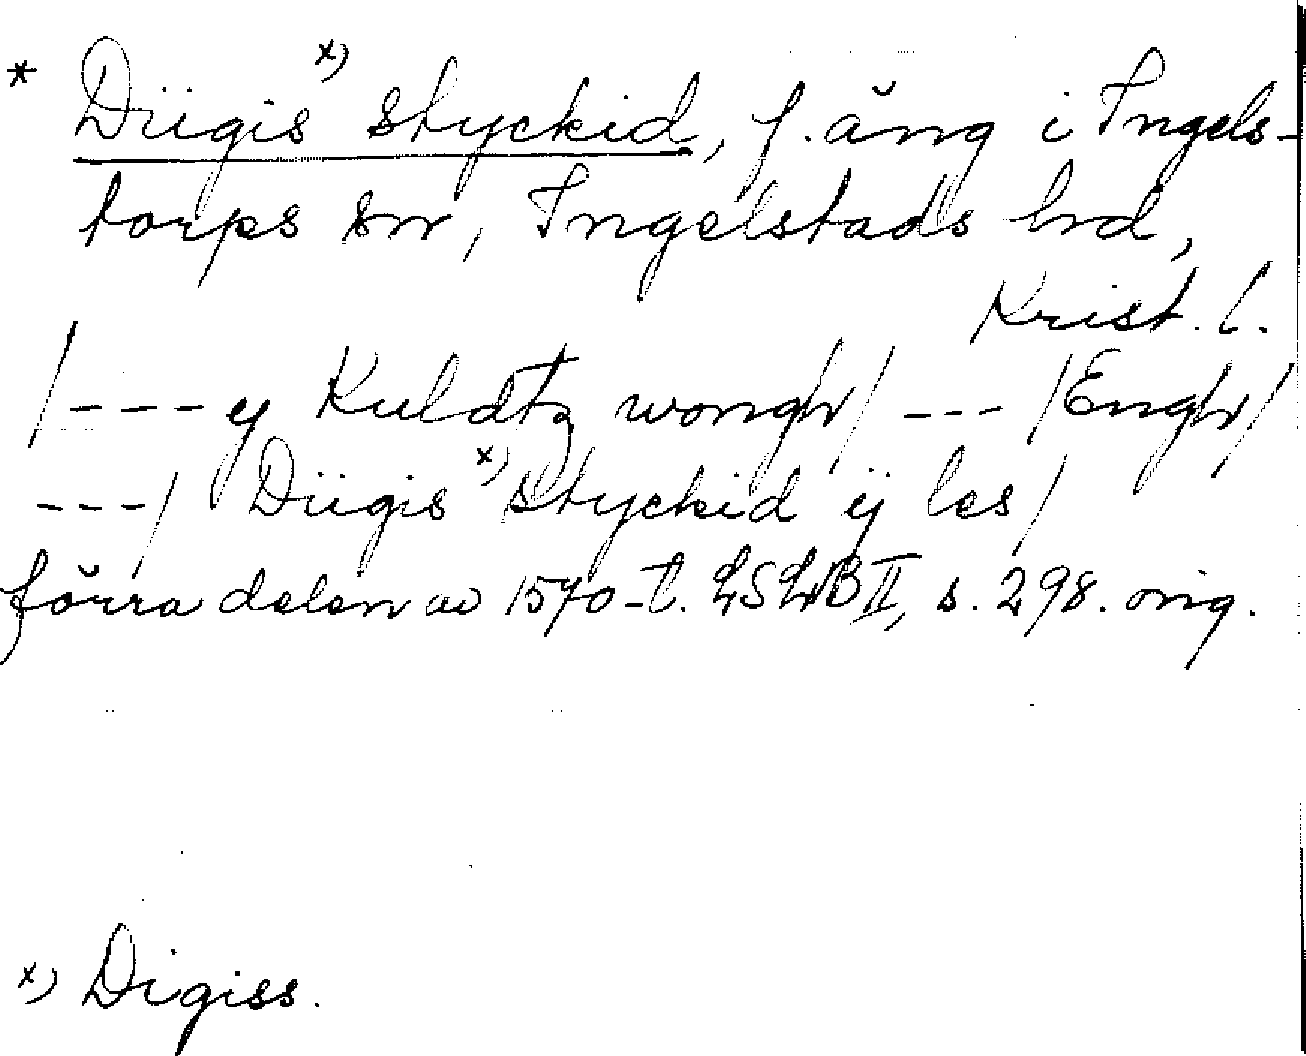 * Diigis x) styckid, f. äng i Ingels-
torps sn, Ingelstads hd,
Krist. l.
/---y Kuldtz wongh/ --- /Engh/
---/ Diigis x) styckid ij les/
förra delen av 1570-t. LSLB II, s. 298. orig.
x) Digiss.